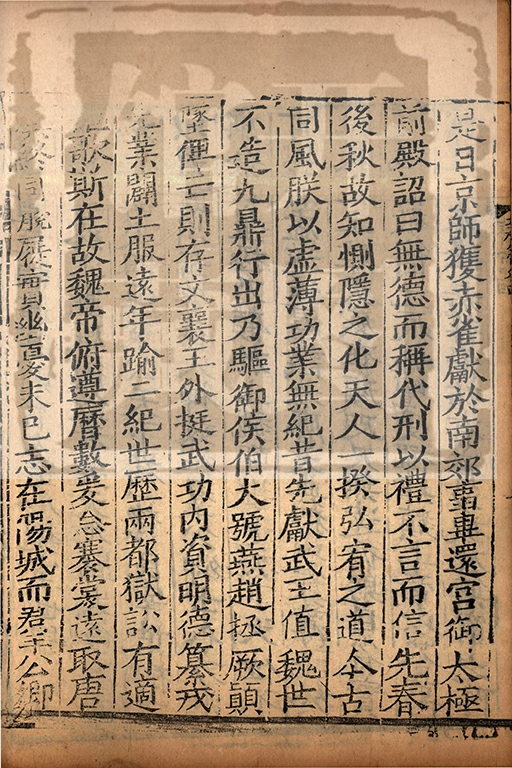 是日京師獲赤雀獻於南郊事畢還宫御太極
前殿詔曰無德而稱代刑以禮不言而信先春
後秋故知惻隱之化天人一揆弘宥之道今古
同風朕以虚薄功業無紀昔先獻武王值魏世
不造九鼎行出乃驅御侯伯大號燕趙拯厥顛
墜俾亡則存文襄王外挺武功内資明德纂戎
先業闢土服遠年踰二紀世歴兩都獄訟有適
謳歌斯在故魏帝俯遵曆數爰念褰裳遠取唐
終同脫屣實幽憂未已志在陽城而君羣公卿